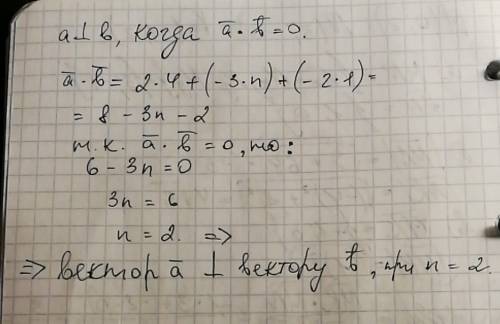 a⊥b, когда a̅·b̅=0.
a̅·b̅= 2·4+(-3·n)+(-2·1)=
= 8 - 3n - 2
т.к. a̅·b̅=0, то:
6 - 3n = 0
3n = 6
n = 2. ⇒
⇒ вектор a̅ ⊥ вектору b̅, при n = 2.